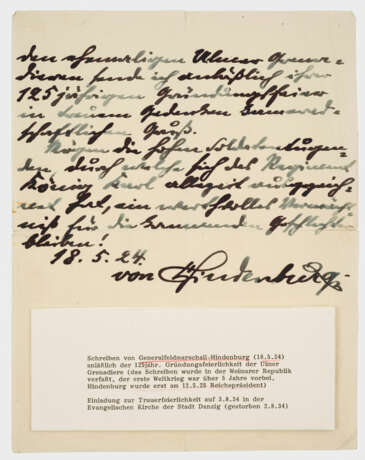 den ehemaligen Ulmer Grena-
dieren sende ich anläßlich ihrer
125 jährigen Gründungsfeier
in treuem Gedenken kamerad-
schaftlichen Gruß.
Mögen die hohen Soldatentugen-
den, durch welche sich das Regiment
König Karl allezeit ausgezeich-
net hat, ein wertvolles Vermächt-
niß für die kommenden Geschlechter
bleiben!
18. 5. 24.
von Hindenburg.
Schreiben von Generalfeldmarschall-Hindenburg (18.5.24)
anläßlich der 125jähr. Gründungsfeierlichkeit der Ulmer
Grenadiere (das Schreiben wurde in der Weimarer Republik
verfaßt, der erste Weltkrieg war über 5 Jahre vorbei,
Hindenburg wurde erst am 12.5.25 Reichspräsident)
Einladung zur Trauerfeierlichkeit auf 3.8.34 in der
Evangelischen Kirche der Stadt Danzig (gestorben 2.8.34)